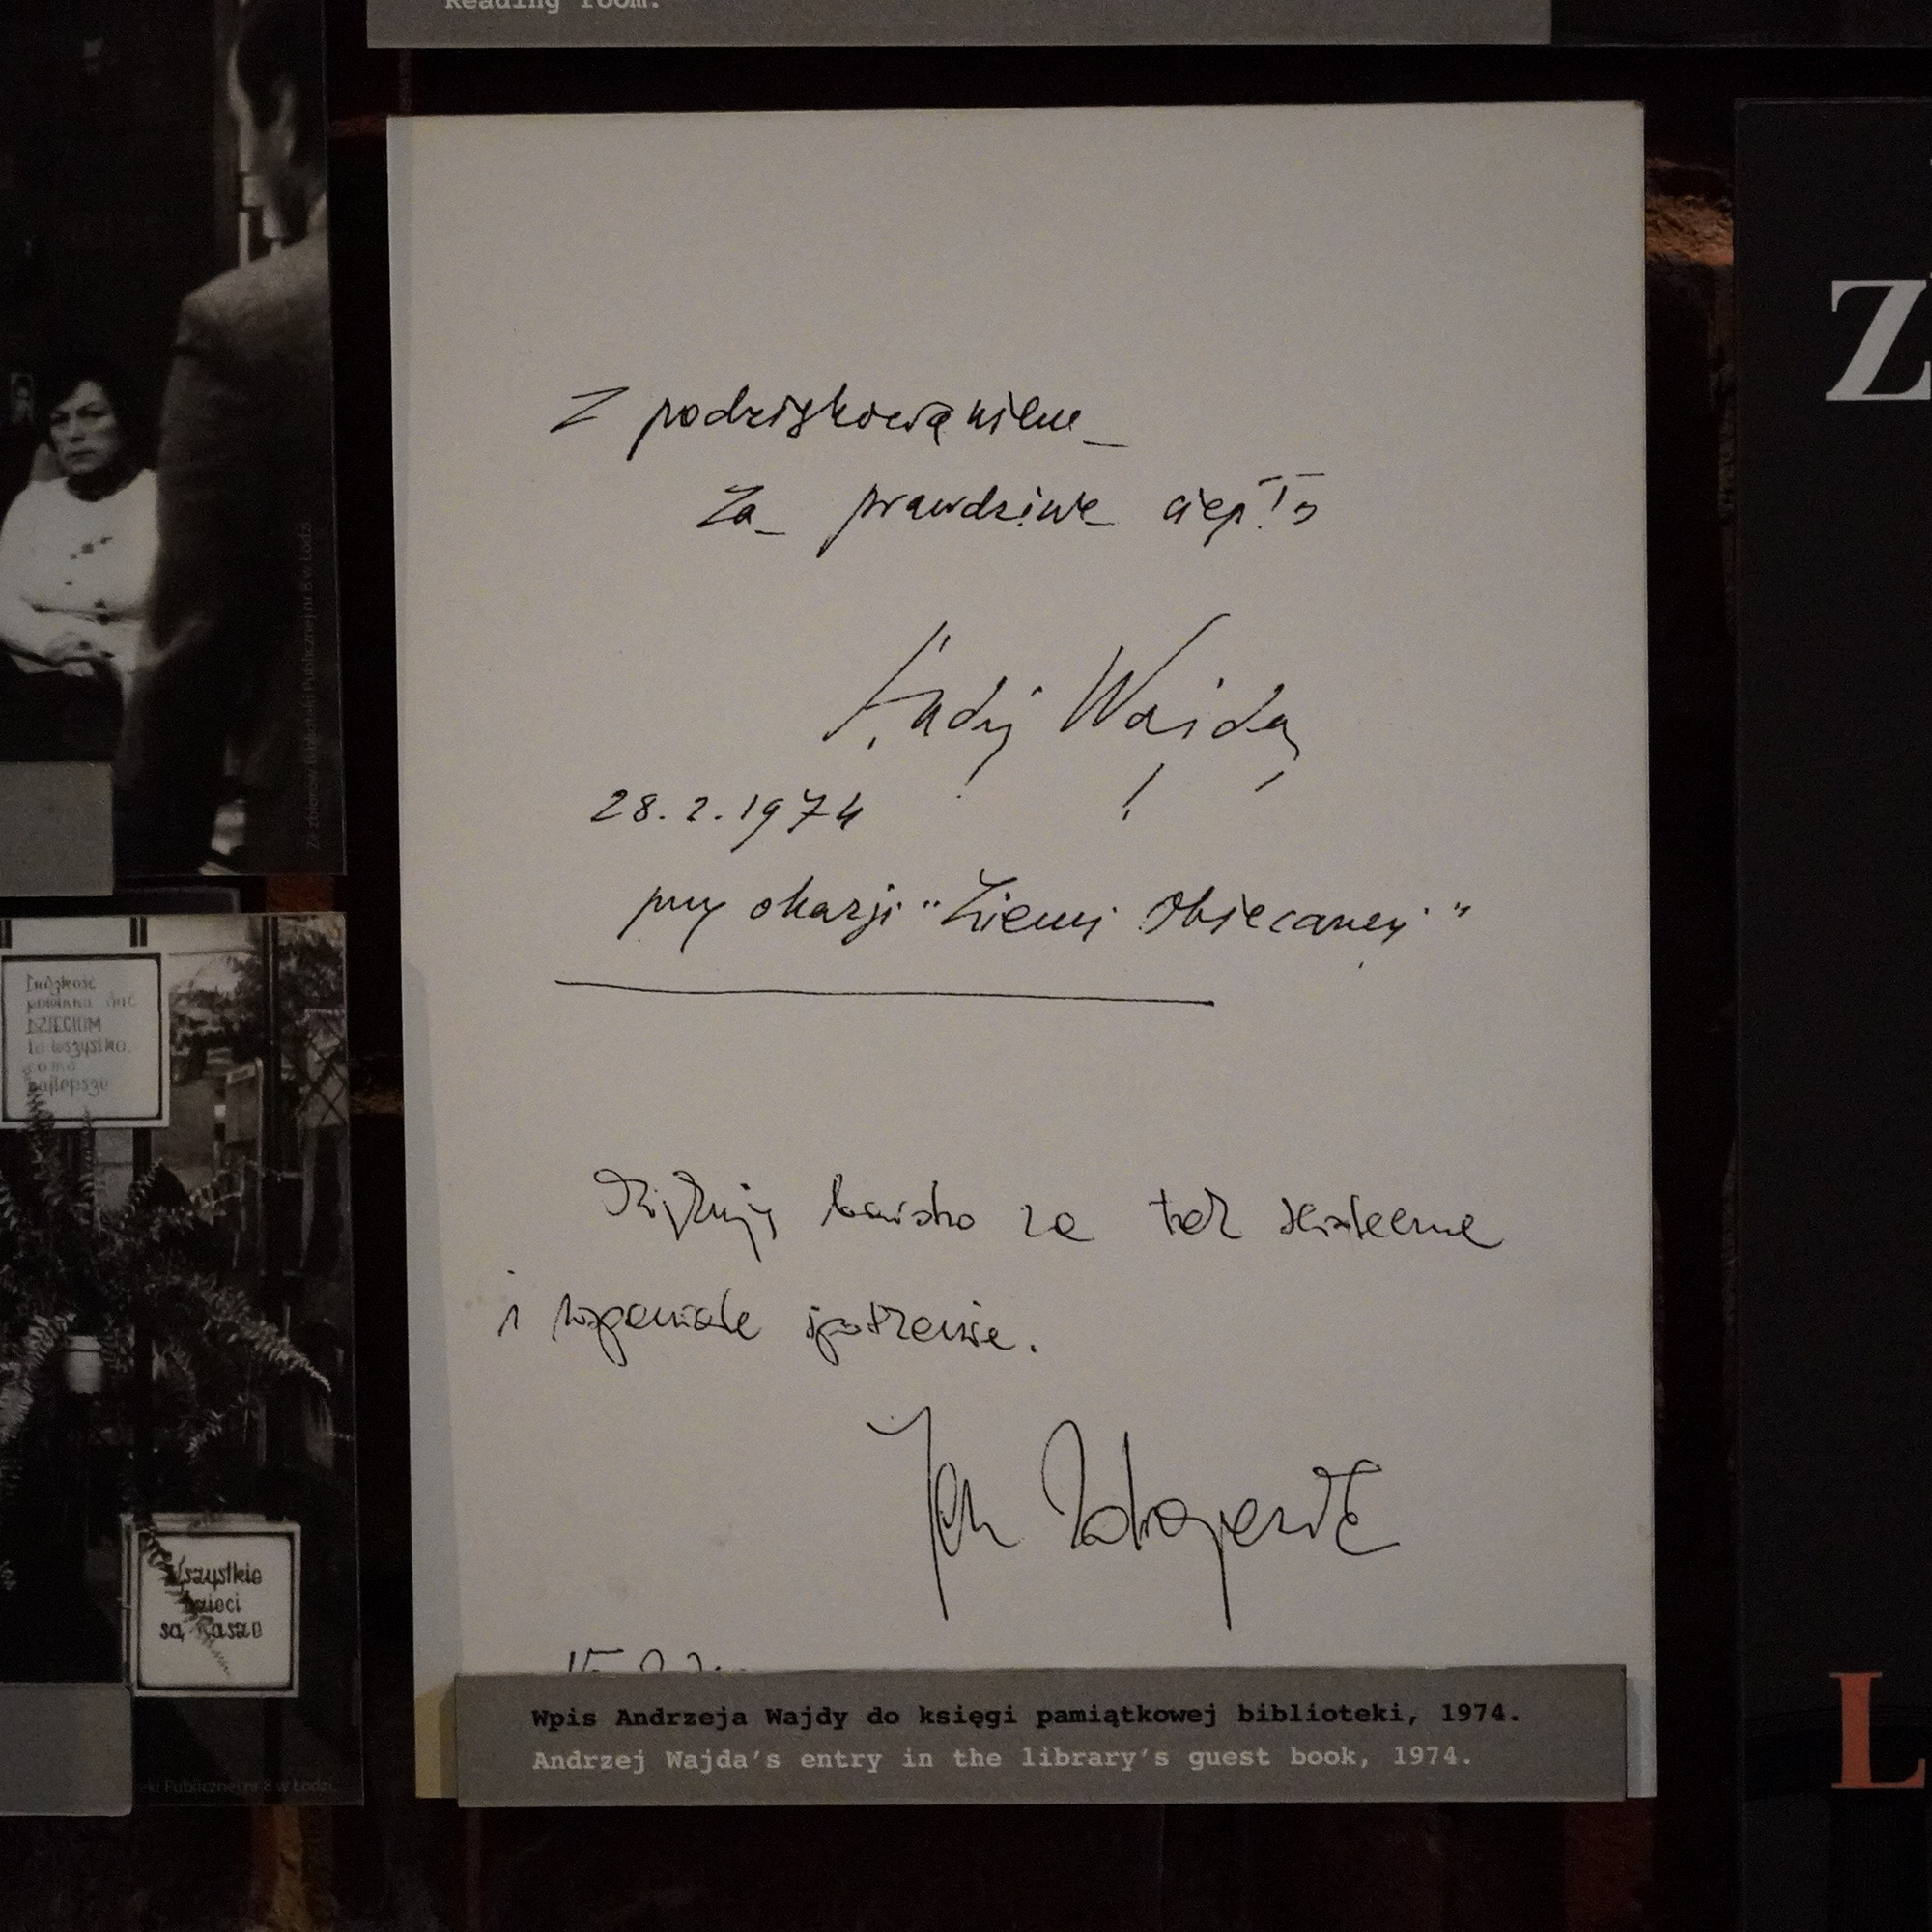 Reading room.
Z podziękowaniem
za prawdziwe ciepło
Andrzej Wajda
28.2.1974
przy okazji "Ziemi Obiecanej"
Dziękuję bardzo za tak serdeczne
i wspaniałe spotkanie.
Jan
Wpis Andrzeja Wajdy do księgi pamiątkowej biblioteki, 1974.
Andrzej Wajda's entry in the library's guest book, 1974.
Ze zbiorów Biblioteki Publicznej nr 8 w Łodzi
Ludzkość
powinna dać
DZIECIOM
to wszystko,
co ma
najlepsze
Wszystkie
dzieci
są nasze
eki Publicznej nr 8 w Łodzi.
Z
L